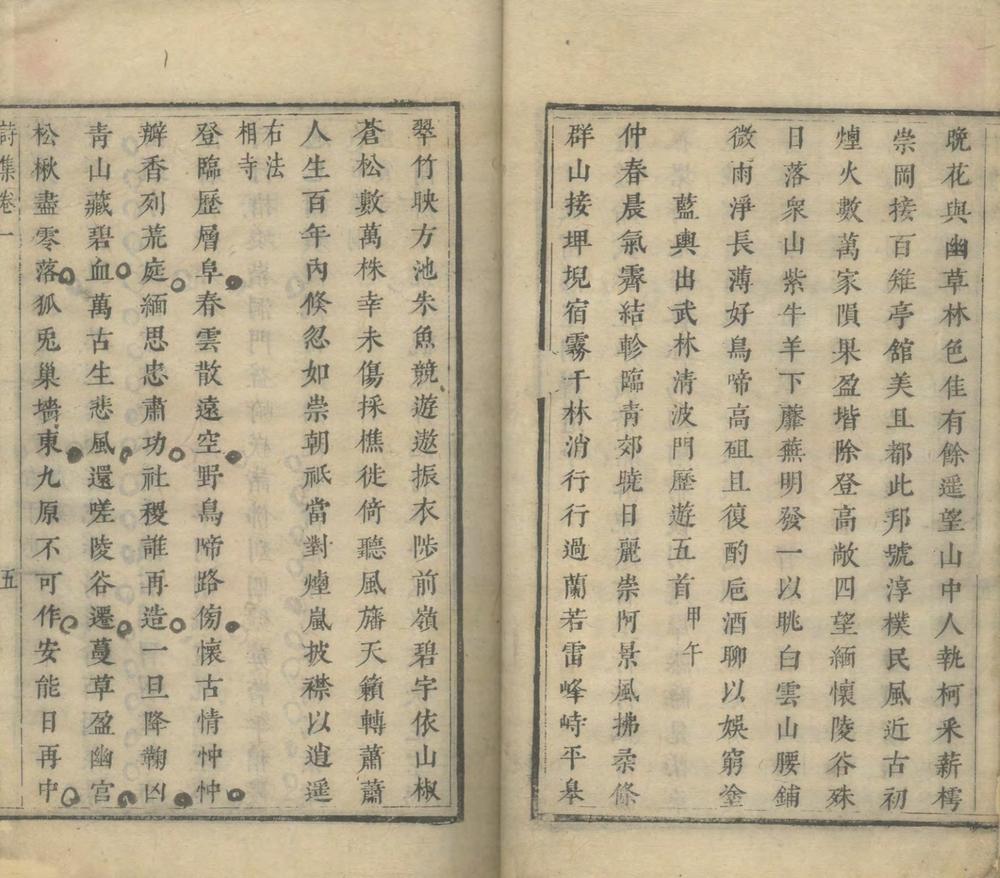 晩花與幽草林色佳有餘遥望山中人執柯采薪樗
崇岡接百雉亭館美且都此邦號淳樸民風近古初
煙火數萬家隕果盈堦除登高敞四望緬懷陵谷殊
日落衆山紫牛羊下蘼蕪明發一以眺白雲山腰鋪
微雨淨長薄好鳥啼高砠且復酌巵酒聊以娛窮塗
藍輿出武林清波門歷遊五首甲午
仲春晨氣霽結軫臨青郊曉日麗崇阿景風拂柔條
群山接埤堄宿霧千林消行行過蘭若雷峰峙平皋
翠竹映方池朱魚競遊遨振衣陟前嶺碧宇依山椒
蒼松數萬株幸未傷採樵徙倚聽風旛天籟轉蕭蕭
人生百年內倏忽如崇朝祇當對煙嵐披襟以逍遥
右法相寺
登臨歷層阜春雲散遠空野鳥啼路傍懷古情忡忡
瓣香列荒庭緬思忠肅功社稷誰再造一旦降鞠凶
青山藏碧血萬古生悲風還嗟陵谷遷蔓草盈幽宮
松楸盡零落狐兎巢墻東九原不可作安能日再中
詩集卷一 五